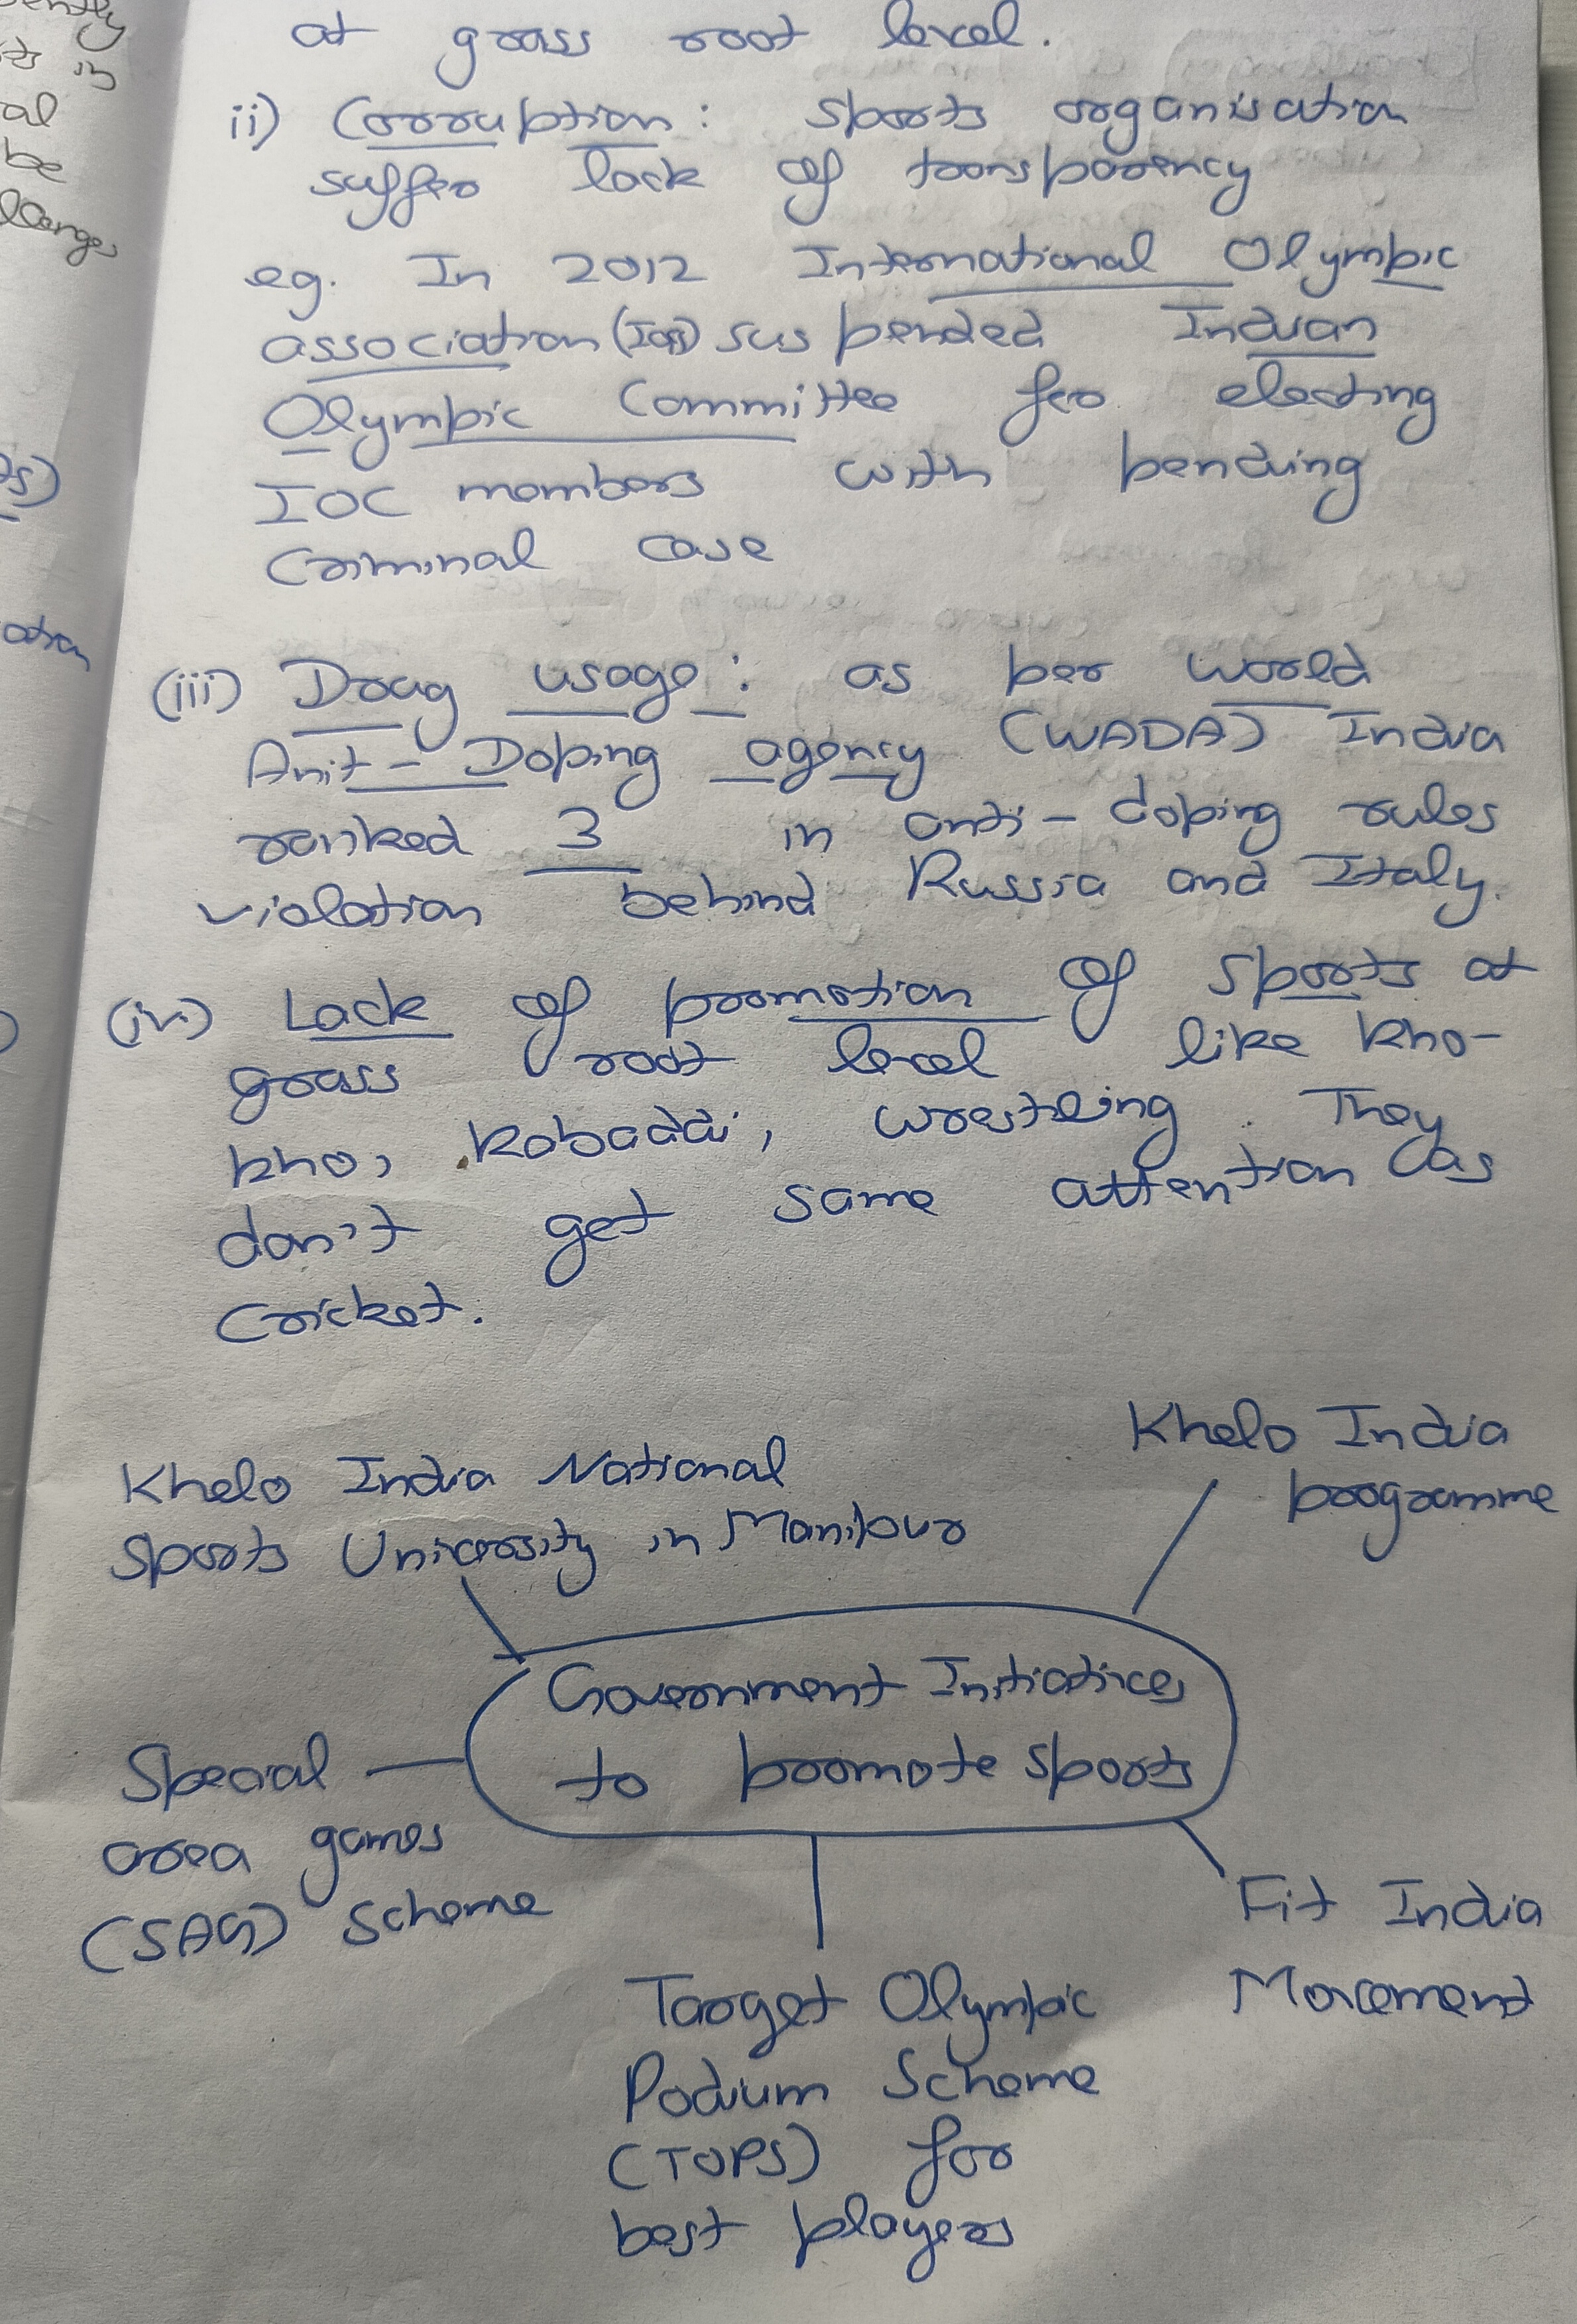 at grass root level.
ii) Corruption: sports organisation
suffer lack of transparency
eg. In 2012 International Olympic
association suspended Indian
Olympic Committee for electing
IOC members with pending
Criminal case
(iii) Drug usage: as per world
Anit-Doping agency (WADA) India
ranked 3 in anti-doping rules
violation behind Russia and Italy.
(iv) Lack of promotion of sports at
grass root level like kho-
kho, kabaddi, wrestling. They
don't get same attention as
Cricket.
Khelo India National
Sports University in Manipur
Khelo India
programme
Government Initiatives
to promote sports
Special
area games
(SAG) Scheme
Target Olympic
Podium Scheme
(TOPS) for
best players
Fit India
Movement
ently
in
al
be
ation